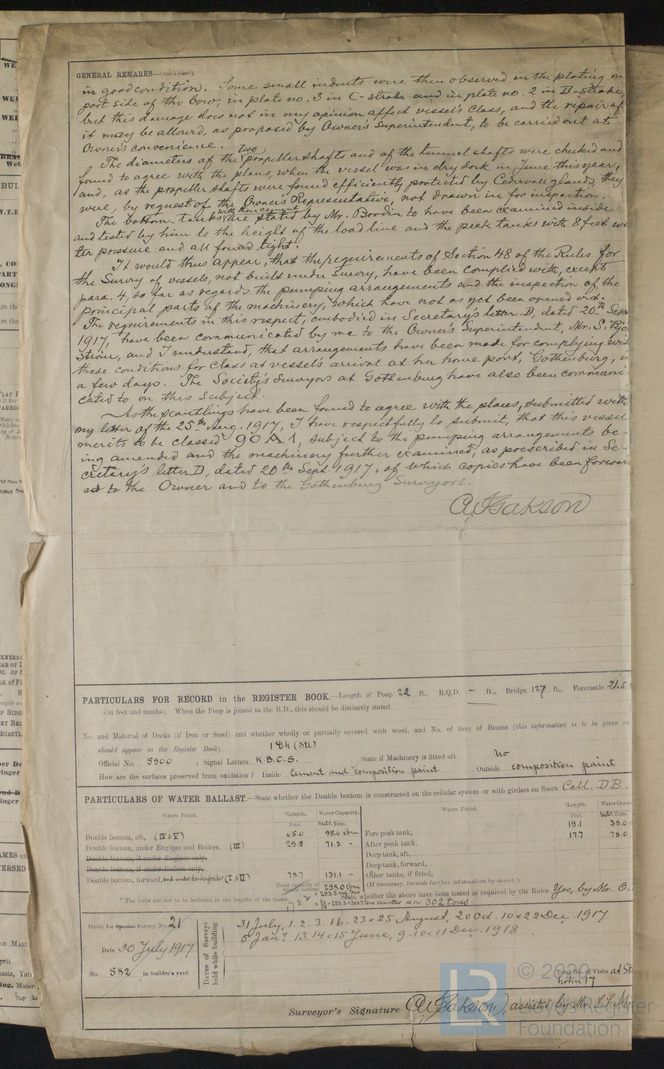 GENERAL REMARKS—(continued).
in good condition. Some small indents were then observed in the plating on
port side of the bow, in plate no. 3 in C-strake and in plate no. 2 in D-strake,
but this damage does not in my opinion affect vessel's Class, and the repair of
it may be allowed, as proposed by Owner's Superintendent, to be carried out at
Owner's convenience.
The diameters of the two propeller shafts and of the tunnel shafts were checked and
found to agree with the plans, when the vessel was in dry dock in June this year,
and, as the propeller shafts were found efficiently protected by Cedervall glands, they
were, by request of the Owner's Representative, not drawn in for inspection.
The bottom tanks are stated by Mr. Brodin to have been examined inside
and tested by him to the height of the load line and the peak tanks with 8 feet wa
ter pressure and all found tight.
It would thus appear, that the requirements of Section 48 of the Rules for
the Survey of vessels, not built under survey, have been complied with, except
para. 4, so far as regards the pumping arrangements and the inspection of the
principal parts of the machinery, which have not as yet been opened out.
The requirements in this respect, embodied in Secretary's letter D, dated 20th Sept.
1917, have been communicated by me to the Owner's Superintendent, Mr. S.
ström, and I understand, that arrangements have been made for complying with
these conditions for Class at vessel's arrival at her home port, Gothenburg, in
a few days. The Society's Surveyors at Gothenburg have also been communi
cated to on this subject.
As the scantlings have been found to agree with the plans, submitted with
my letter of the 25th Aug. 1917, I have respectfully to submit, that this vessel
merits to be classed 90 A 1, subject to the pumping arrangements be-
ing amended and the machinery further examined, as prescribed in Se-
cretary's letter D, dated 20th Sept. 1917, of which copies have been forward
ed to the Owner and to the Gothenburg Surveyors.
A. Isakson
PARTICULARS FOR RECORD in the REGISTER BOOK.—Length of Poop 22 ft., R.Q.D. - ft., Bridge 127 ft., Forecastle 21.5
(in feet and tenths). When the Poop is joined to the B.D., this should be distinctly stated
No. and Material of Decks (if Iron or Steel) and whether wholly or partially covered with wood, and No. of tiers of Beams (this information is to be given as
should appear in the Register Book) 1 Dk (Stl)
Official No. 5900 ; Signal Letters K.B.C.S. State if Machinery is fitted aft No
How are the surfaces preserved from oxidation? Inside cement and composition paint Outside composition paint
PARTICULARS OF WATER BALLAST.—State whether the Double bottom is constructed on the cellular system or with girders on floors Cell. D.B.
Where Fitted. *Length. Water Capacity. Where Fitted. *Length. Water Capac
Feet. Tons. Feet. Tons.
Double bottom, aft, (IV & V) 65.0 95.0 cbm Fore peak tank, 19.1 39.0
Double bottom, under Engines and Boilers, (III) 29.5 71.3 - After peak tank, 17.7 78.0
Double bottom, if under Engines only, Deep tank, aft,
Double bottom, if under Boilers only, Deep tank, forward,
Double bottom, forward, (I & II) 78.7 131.1 - Other tanks, if fitted,
(If necessary, furnish further information by sketch.)
Total capacity of double bottom
* The wells are not to be included in the lengths of the tanks. State whether the above have been tested as required by the Rules Yes, by Mr. B.
or 302 tons
Order for Special Survey No. 21
Date 30 July 1917
No. 582 in builder's yard
Dates of Surveys held while building
31 July, 1. 2. 3. 16. 23 & 25 August, 20 Oct. 10 & 22 Dec. 1917
5 Jan. 13. 14 & 15 June, 9. 10 & 11 Dec. 1918
Total No. of Visits at Stock
holm 17
Surveyor's Signature A. Isakson, assisted by Mr.
LR
© 2020
Lloyd's Register
Foundation